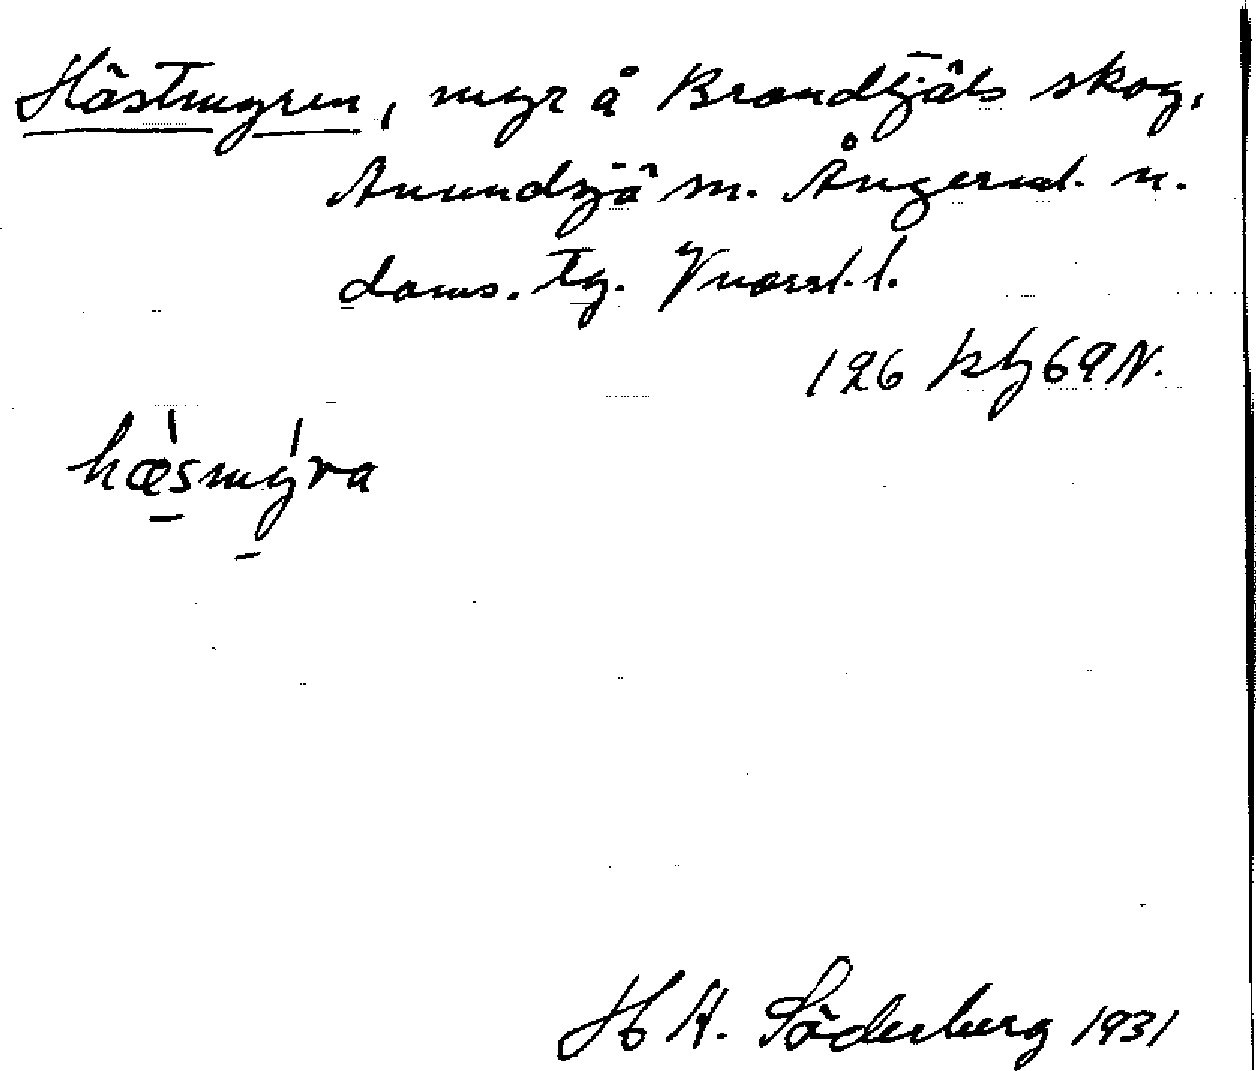 Hästmyren, myr å Brandtjäls skog,
Anundsjö sn. Ångerml. n.
doms. tg. Vnorrl. l.
126 ktz 69 N.
hæsmýra
H A. Söderberg 1931